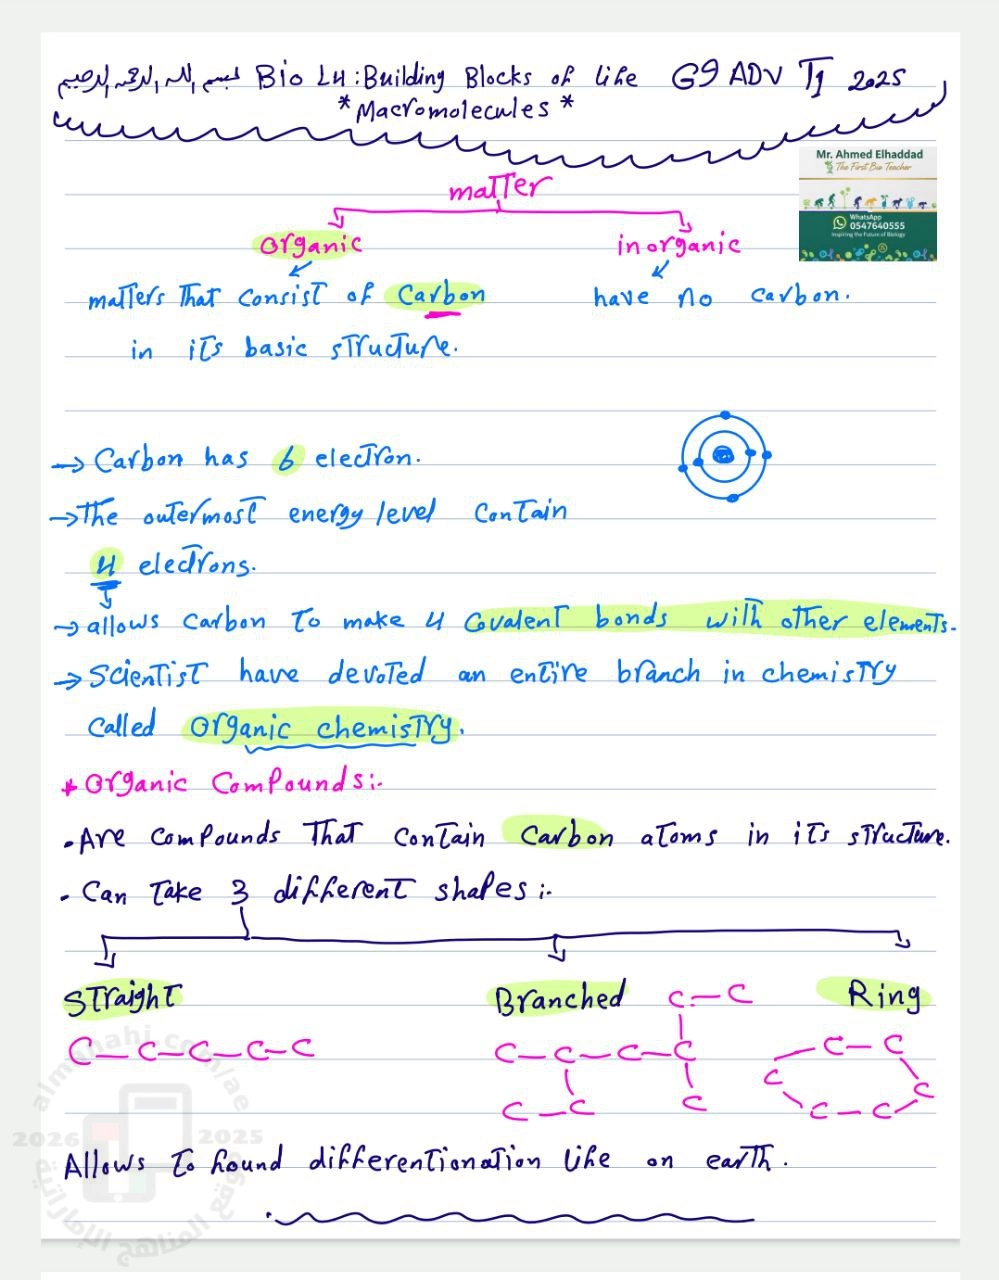 بسم الله الرحمن الرحيم Bio L4 : Building Blocks of life G9 ADV T1 2025
* Macromolecules *
Mr. Ahmed Elhaddad
The First Bio Teacher
WhatsApp
0547640555
Inspiring the Future of Biology
matter
organic inorganic
matters That consist of Carbon have no carbon.
in its basic structure.
→ Carbon has 6 electron.
→ The outermost energy level contain
4 electrons.
→ allows carbon to make 4 Covalent bonds with other elements.
→ Scientist have devoted an entire branch in chemistry
called organic chemistry.
* Organic Compounds:-
• Are compounds That contain Carbon atoms in its structure.
• Can Take 3 different shapes :-
Straight Branched Ring
C-C
C-C-C-C-C C-C-C-C C-C
C C
C-C C C-C
Allows to found differentionation life on earth.
almanahj.com/ae
2026 2025
موقع المناهج الإماراتية